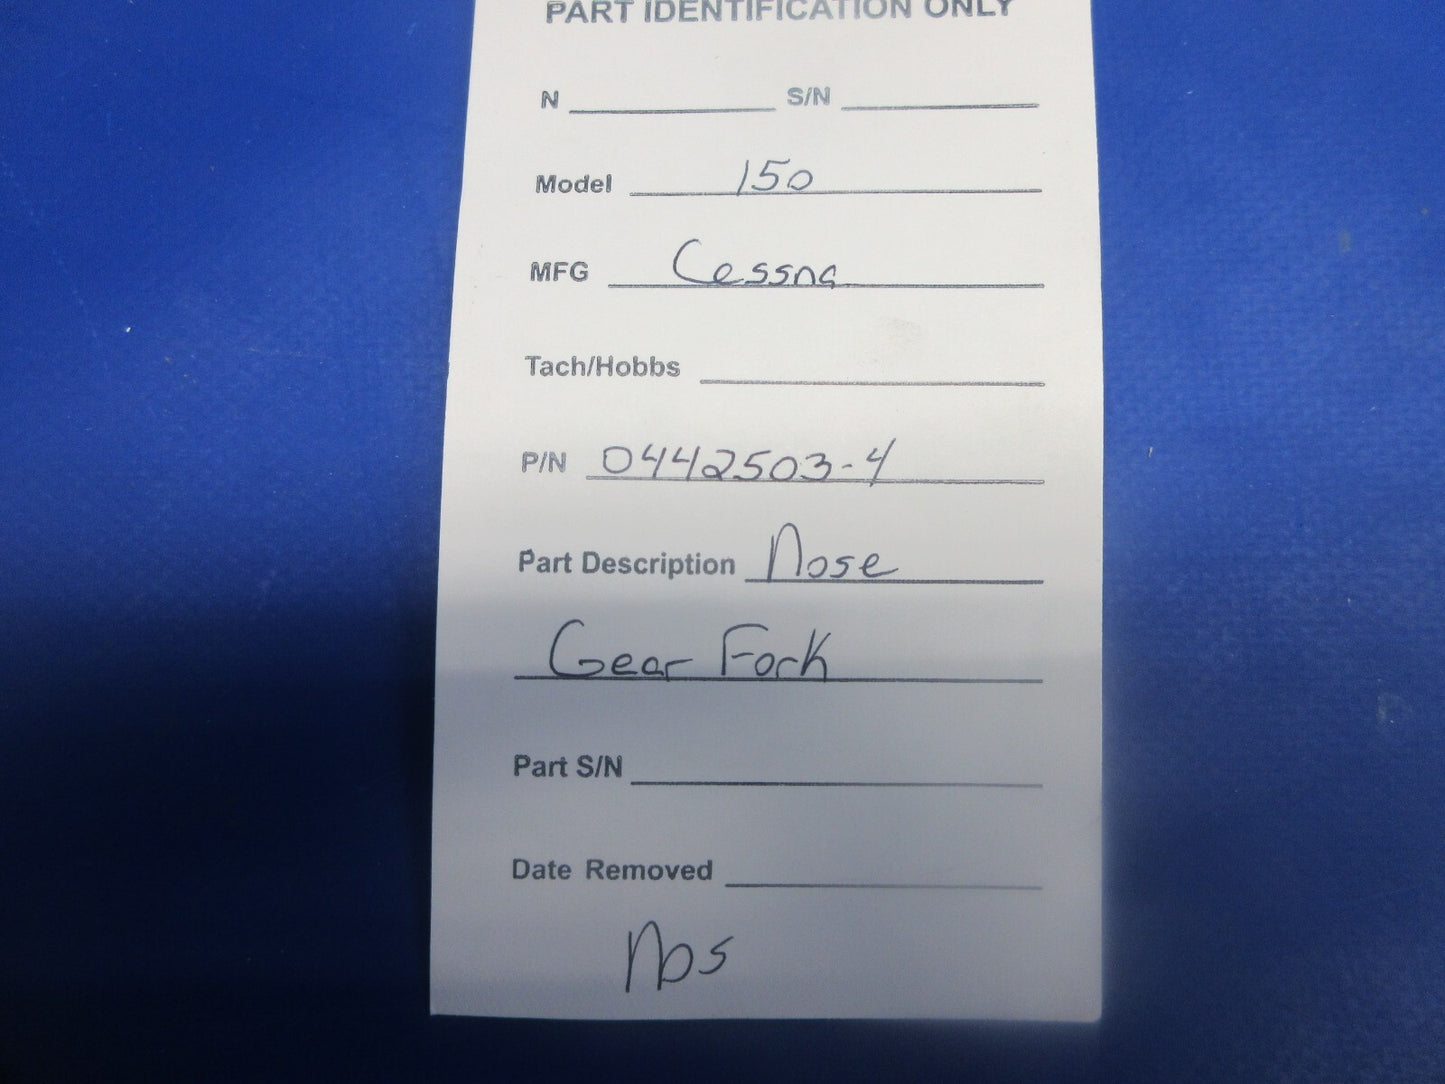 PART IDENTIFICATION ONLY
N S/N
Model 150
MFG Cessna
Tach/Hobbs
P/N 0442503-4
Part Description Nose
Gear Fork
Part S/N
Date Removed
Nos